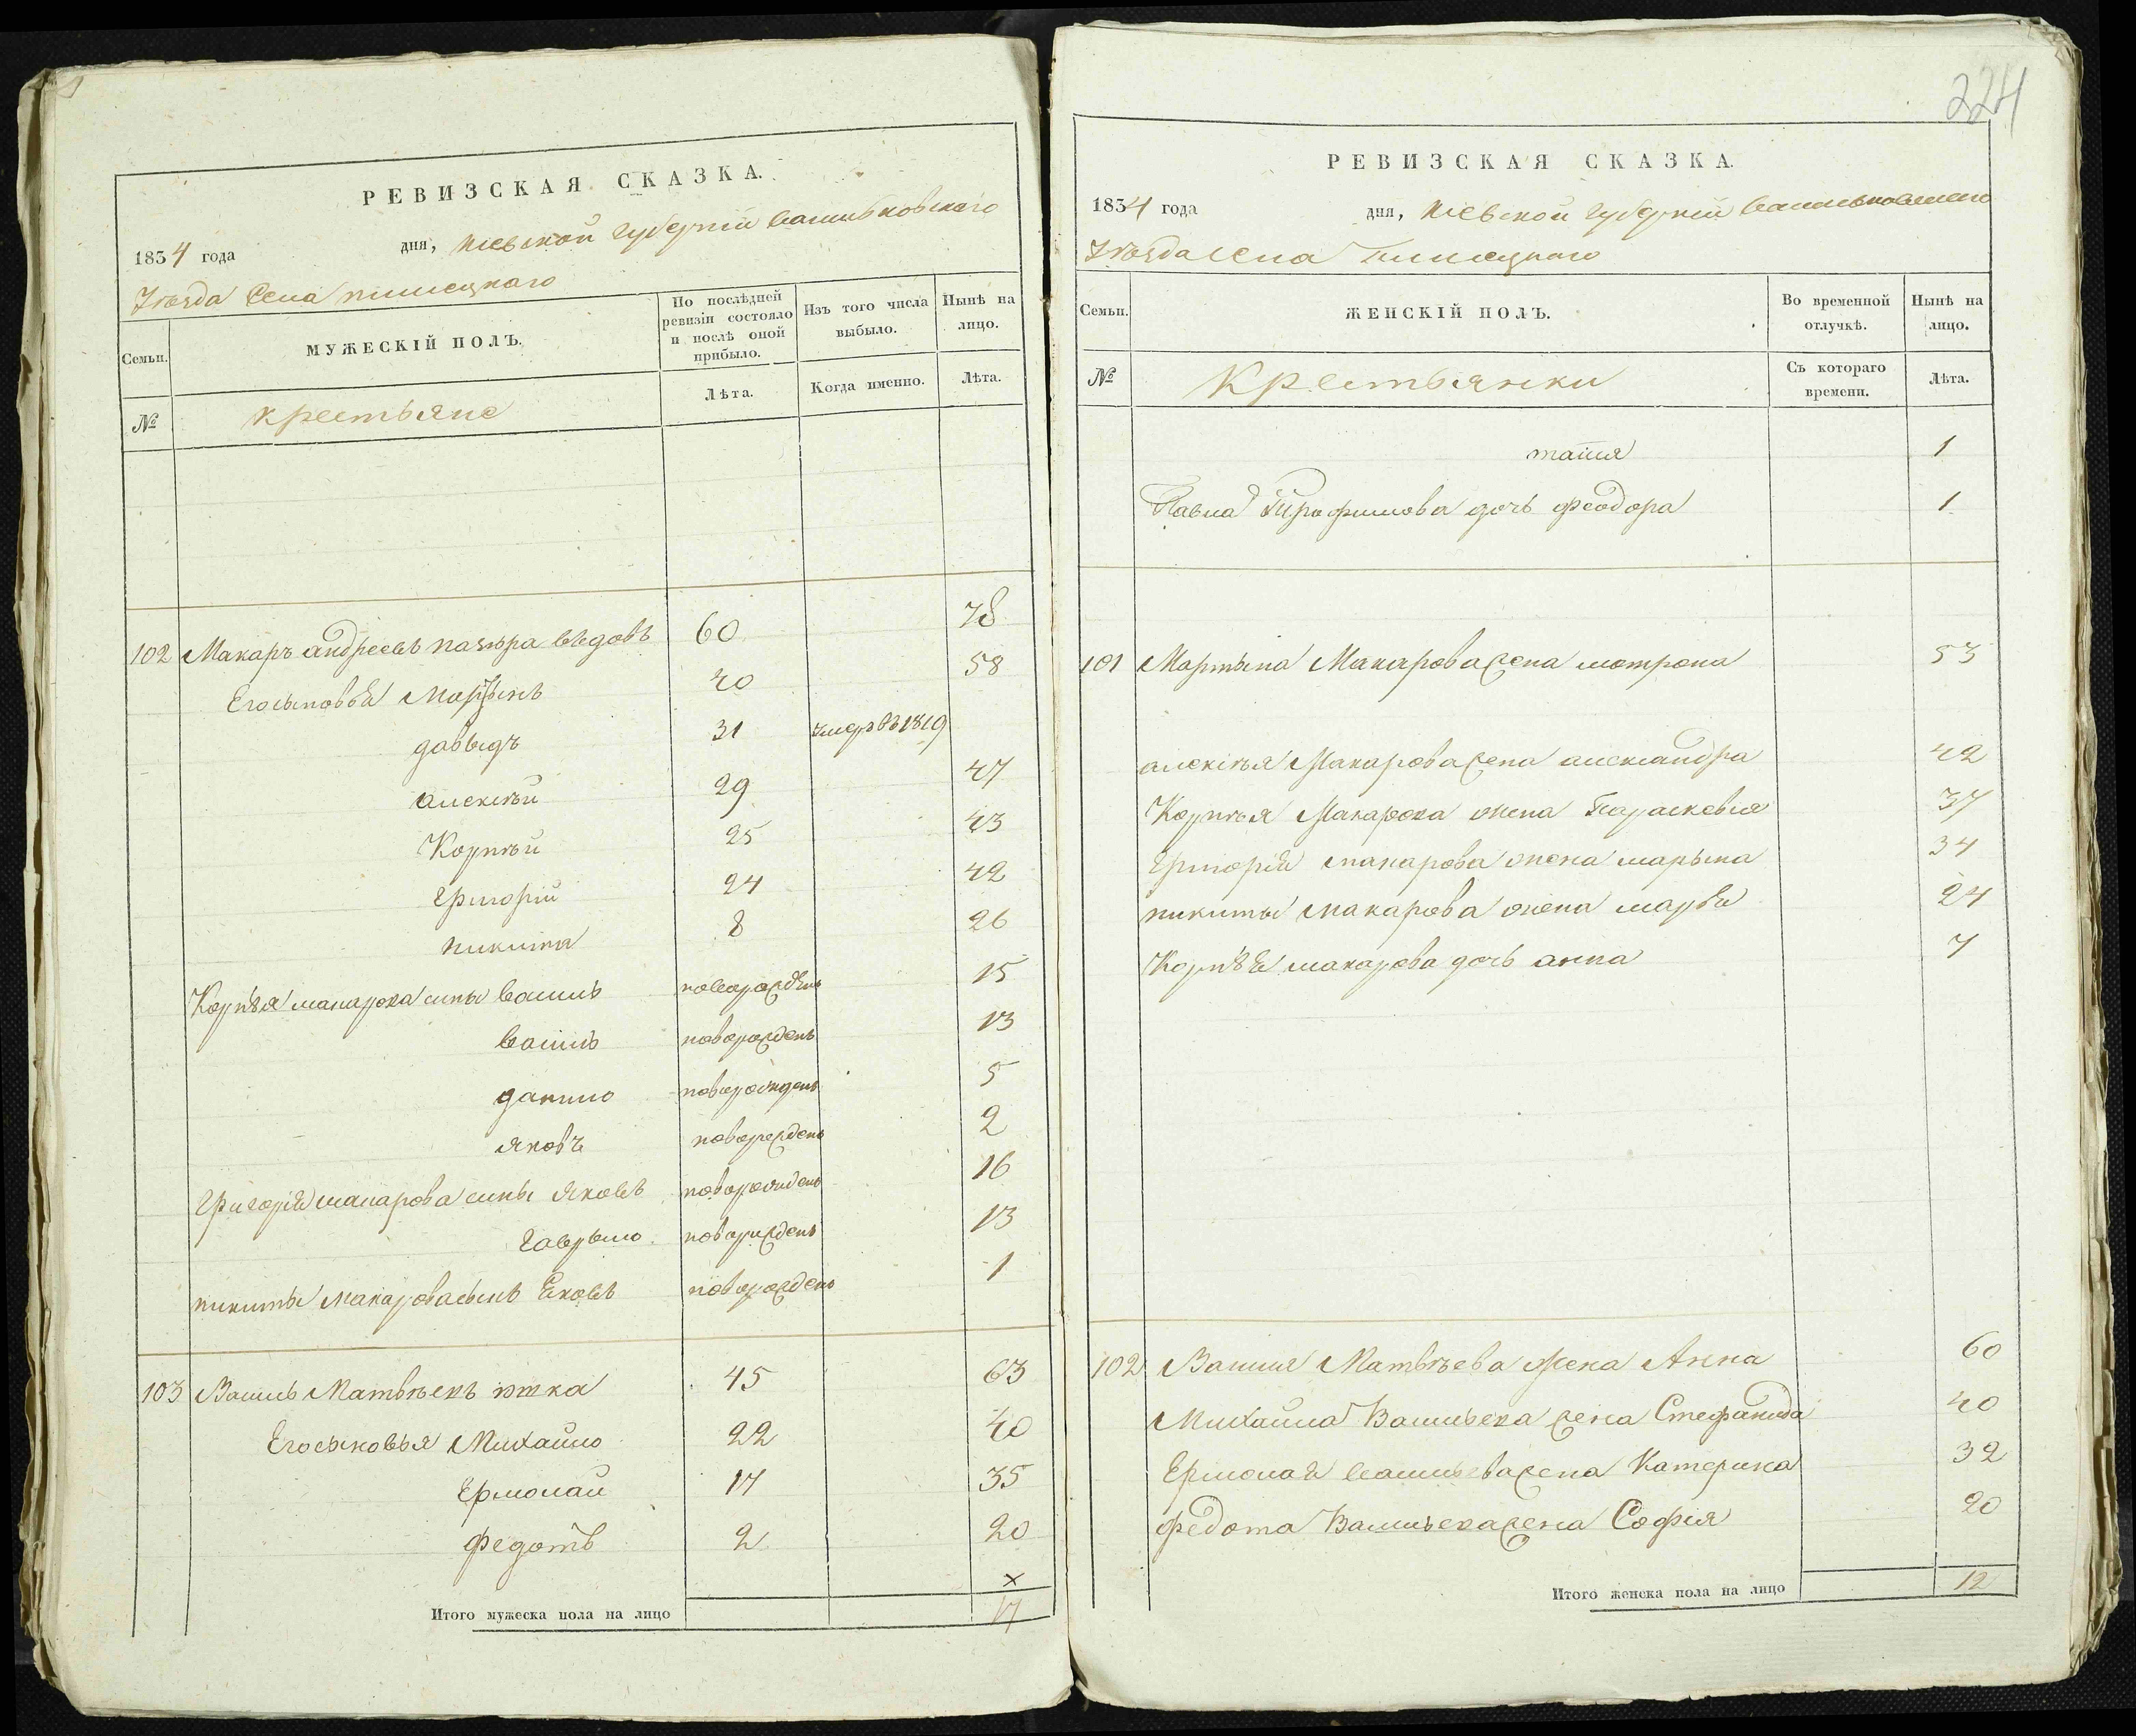 РЕВИЗСКАЯ СКАЗКА.
1834 года дня, Киевской губернии Васильковского
Уезда Села
Семьи. МУЖЕСКІЙ ПОЛЪ. По послѣдней ревизіи состояло и послѣ оной прибыло. Изъ того числа выбыло. Нынѣ на лицо.
№ крестьяне Лѣта. Когда именно. Лѣта.
102 Макаръ андреевъ 60 78
Его сыновья Мартынъ 40 58
давыдъ 31 умеръ въ 1819
алексѣй 29 47
Корнѣй 25 43
Григорій 24 42
никита 8 26
Корнѣя макарова сины василь новорожденъ 15
василь новорожденъ 13
данило новорожденъ 5
яковъ новорожденъ 2
Григорія макарова сины яковъ новорожденъ 16
гаврыло новорожденъ 13
никиты макарова сынъ Яковъ новорожденъ 1
103 Василь Матвѣевъ 45 63
Его сыновья Михайло 22 40
Ермолай 17 35
федотъ 2 20
х
Итого мужеска пола на лицо 17
224
РЕВИЗСКАЯ СКАЗКА.
1834 года дня, Киевской губерніи Васильковского
Уѣзда села
Семьи. ЖЕНСКІЙ ПОЛЪ. Во временной отлучкѣ. Нынѣ на лицо.
№ Крестьянки Съ котораго времени. Лѣта.
1
Павла Трофимова дочь феодора 1
101 Мартына Макарова жена мотрона 53
алексѣя Макарова жена александра 42
Корнѣя Макарова жена Параскевия 37
Григорія макарова жена марына 34
никиты макарова жена марфа 24
Корнѣя макарова дочь анна 7
102 Василя Матвѣева жена Анна 60
Михайла Васильева жена Стефанида 40
Ермолая васильева жена Катерина 32
федота Васильева жена Софія 20
Итого женска пола на лицо 12